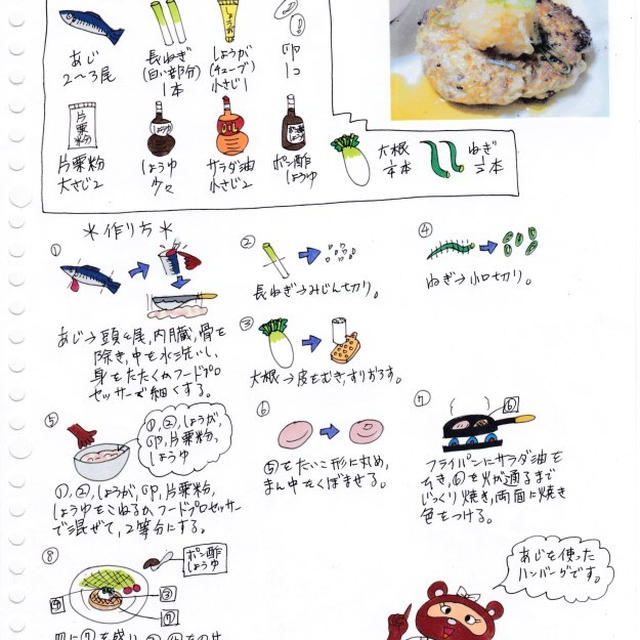 あじ
2〜3尾
長ねぎ
(白い部分)
1本
しょうが
(チューブ)
小さじ1
卵
1コ
しょうが
片栗粉
片栗粉
大さじ2
しょうゆ
少々
OIL
サラダ油
小さじ2
ポン酢
しょうゆ
大根
ねぎ
*作り方*
①
あじ→頭と尾,内臓,骨を
除き,中を水洗いし,
身をたたくかフードプロ
セッサーで細くする。
②
長ねぎ→みじん切り。
③
大根→皮をむき,すりおろす。
④
ねぎ→小口切り。
⑤
①,②,しょうが,
卵,片栗粉,
しょうゆ
①,②,しょうが,卵,片栗粉,
しょうゆをこねるか,フードプロセッサー
で混ぜて,2等分にする。
⑥
⑤をたいこ形に丸め,
まん中をくぼませる。
⑦
⑥
フライパンにサラダ油を
ひき,⑥を火が通るまで
じっくり焼き,両面に焼き
色をつける。
⑧
ポン酢
しょうゆ
④
③
⑦
皿に⑦を盛り,
あじを使った
ハンバーグです。